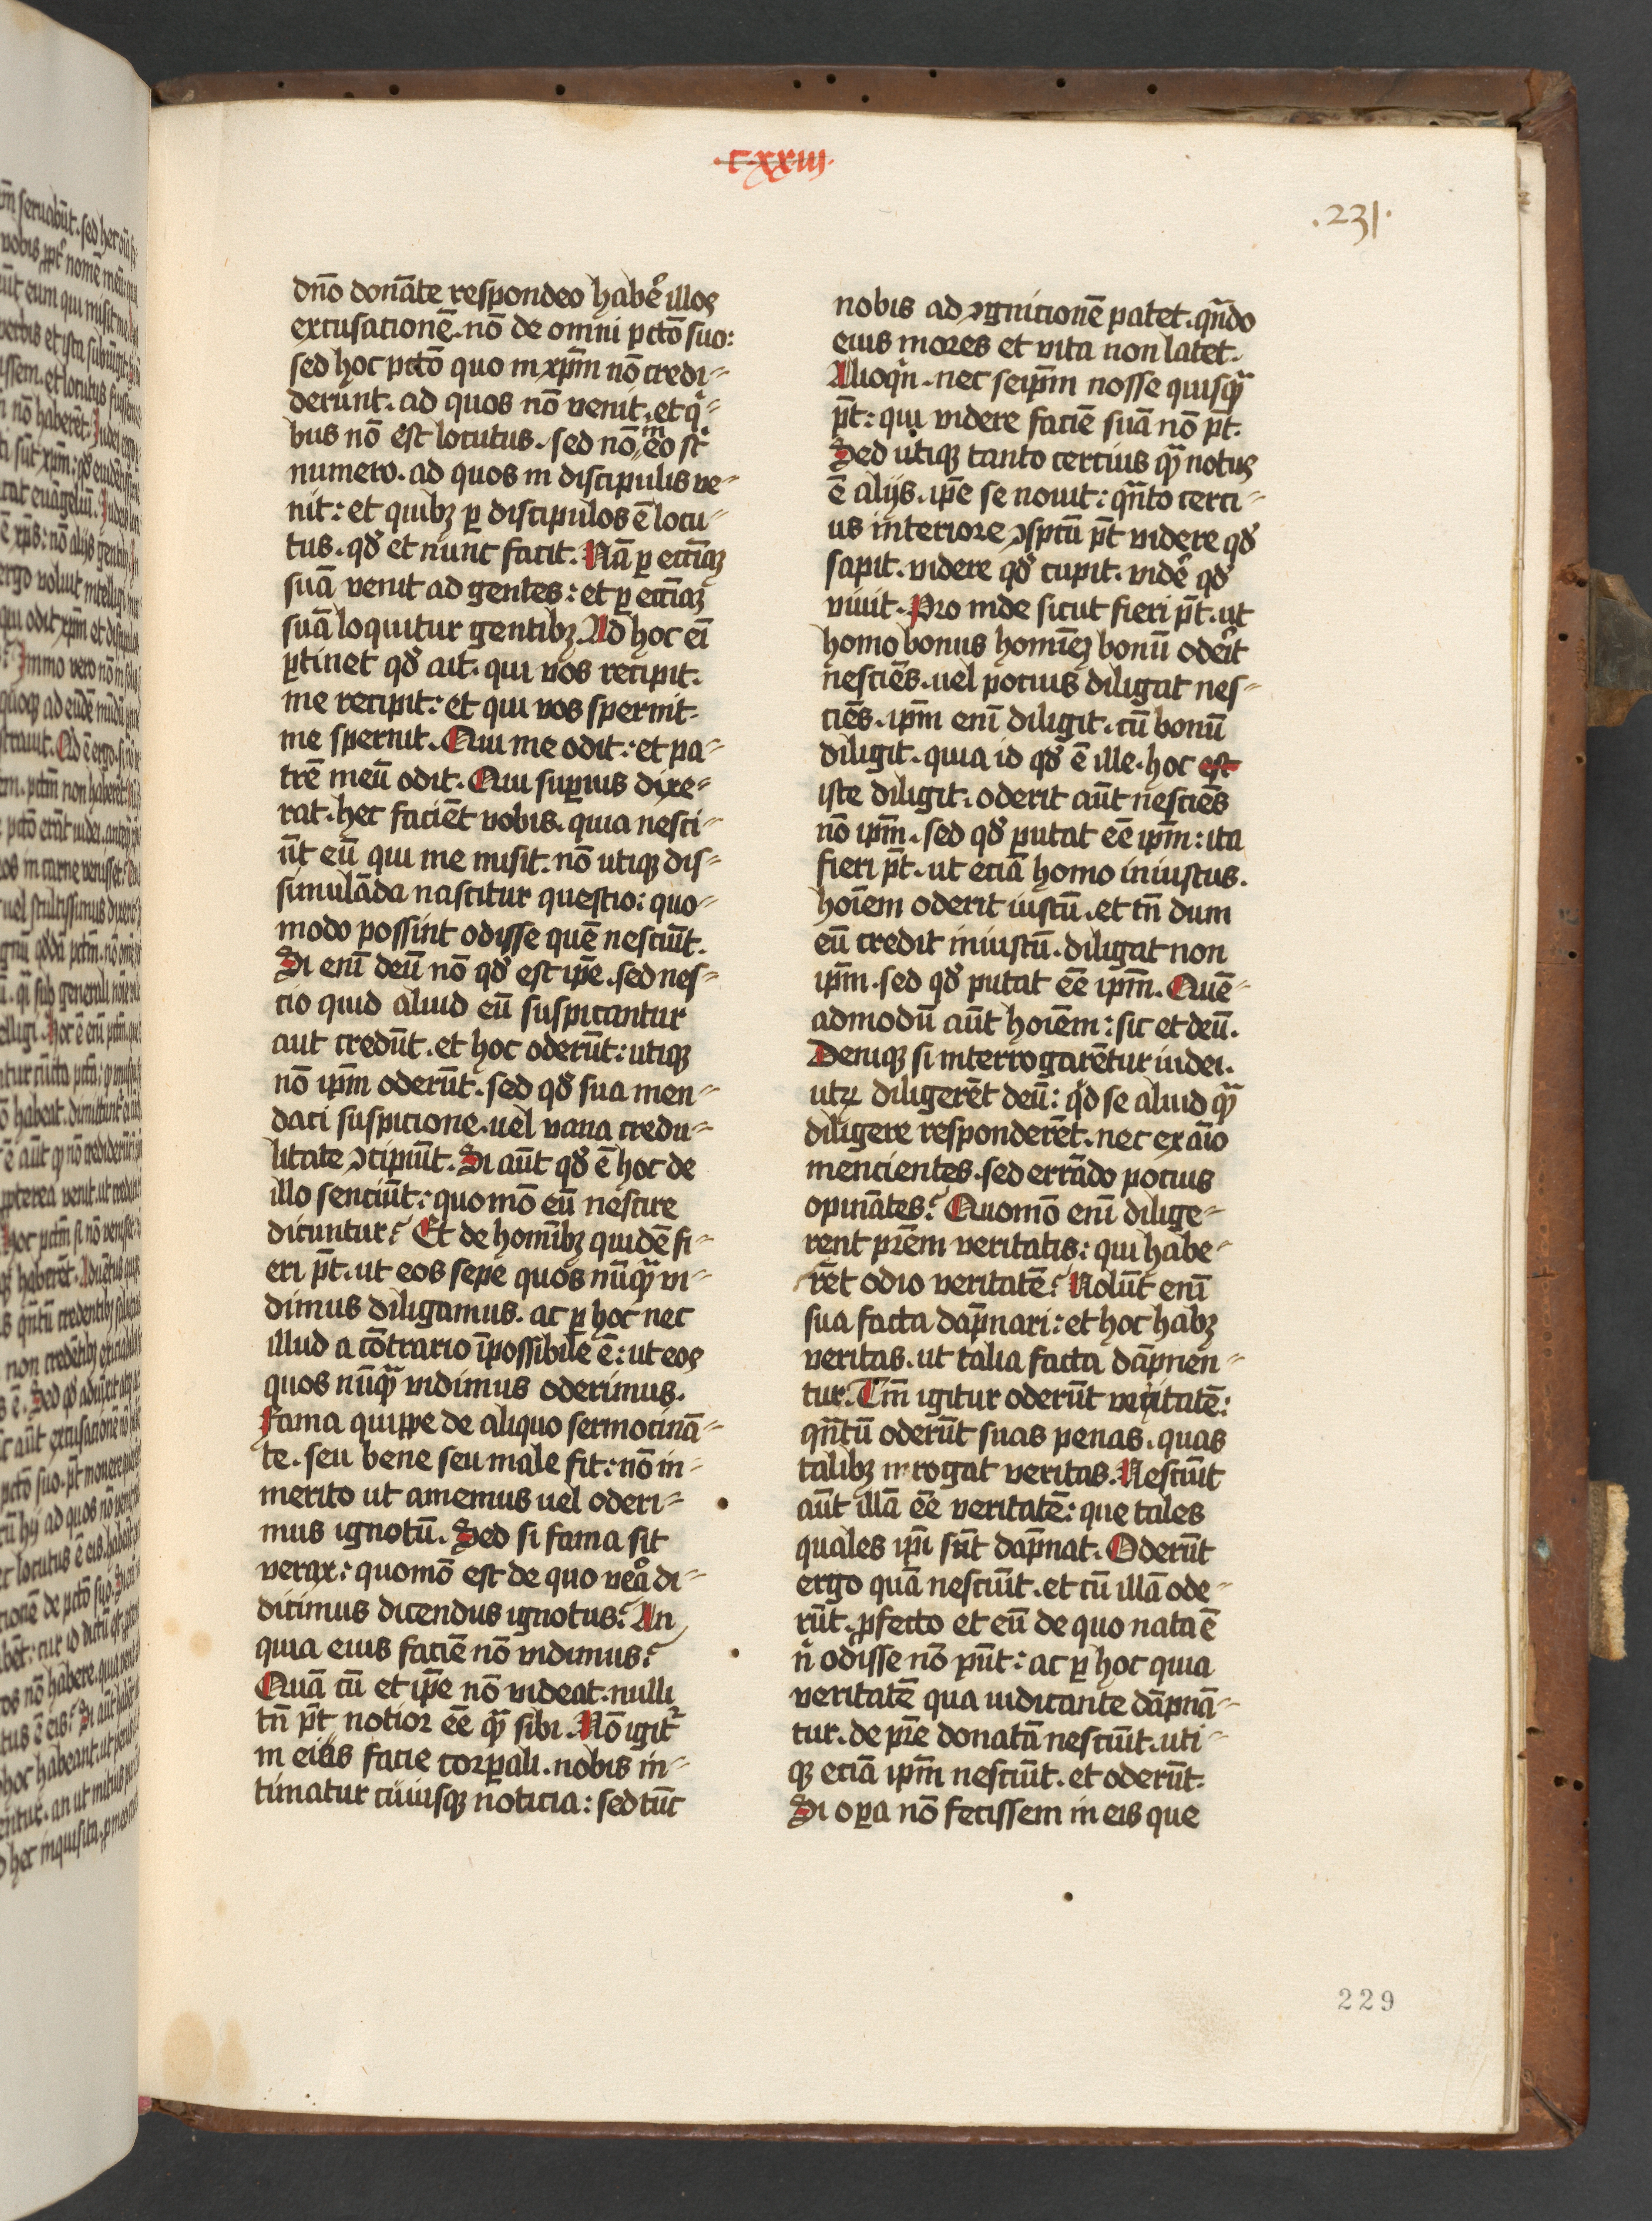 ·cxxiij·
·231·
dn̄o donāte respondeo habe᷑ illos
excusacionē. nō de omni pctō suo:
sed hoc pctō quo in xp̄m nō credi⸗
derunt. ad quos nō venit. et qͥ⸗
bus nō est locutus. sed nō in eo st᷑
numero. ad quos in discipulis ve⸗
nit: et quibꝫ ꝑ discipulos ē locu⸗
tus. qd̓ et nunc facit. Nā ꝑ eccl̄iaꝫ
suā venit ad gentes: et ꝑ eccl̄iaꝫ
suā loquitur gentibꝫ. Ad hoc eī
ꝑtinet qd̓ ait. qui vos recipit.
me recipit: et qui vos spernit.
me spernit. Qui me odit: et pa⸗
trē meū odit. Qui suꝑius dixe⸗
rat. hec faciēt vobis. quia nesci⸗
ūt eū qui me misit. nō utiqꝫ dis⸗
simulāda nascitur questio: quo⸗
modo possint odisse quē nesciūt.
Si enī deū nō qd̓ est ip̄e. sed nes⸗
cio quid aliud eū suspicantur
aut credūt. et hoc oderūt: utiqꝫ
nō ip̄m oderūt. sed qd̓ sua men⸗
daci suspicione. uel vana credu⸗
litate ꝯcipiūt. Si aūt qd̓ ē hoc de
illo senciūt: quomō eū nescire
dicuntur? Et de homībꝫ quidē fi⸗
eri pt̄. ut eos sepe quos nūqꝫᷓ vi⸗
dimus diligamus. ac ꝑ hoc nec
illud a cōtrario īpossibile ē: ut eos
quos nūqꝫᷓ vidimus oderimus.
Fama quippe de aliquo sermocinā⸗
te. seu bene seu male fit: nō in⸗
merito ut amemus uel oderi⸗
mus ignotū. Sed si fama sit
verax: quomō est de quo ve᷑a di⸗
dicimus dicendus ignotus? An
quia eius faciē nō vidimus?
Quā cū et ip̄e nō videat. nulli
tn̄ pt̄ notior eē qꝫᷓ sibi. Nō igit᷑
in eius facie corꝑali. nobis in⸗
timatur cuiusqꝫ noticia: sed tūc
nobis ad ꝯgnicionē patet. qn̄do
eius mores et vita non latet.
Alioqͥn. nec seip̄m nosse quisqꝫᷓ
pt̄: qui videre faciē suā nō pt̄.
Sed utiqꝫ tanto cercius qꝫᷓ notus
ē alijs. ip̄e se nouit: qn̄to cerci⸗
us interiore ꝯsp̄tu pt̄ videre qd̓
sapit. videre qd̓ cupit. vide᷑ qd̓
viuit. Pro inde sicut fieri pt̄. ut
homo bonus homīeꝫ bonū ode᷑it
nesciēs. uel pocius diligat nes⸗
ciēs. ip̄m enī diligit. cū bonū
diligit. quia id qd̓ ē ille. hoc est
iste diligit. oderit aūt nesciēs
nō ip̄m. sed qd̓ putat eē ip̄m: ita
fieri pt̄. ut eciā homo iniustus.
hoīem oderit iustū. et tn̄ dum
eū credit iniustū. diligat non
ip̄m. sed qd̓ putat eē ip̄m. Quē⸗
admodū aūt hoīem: sic et deū.
Deniqꝫ si interrogarētur iudei.
utꝝ diligerēt deū: qͥd se aliud qꝫᷓ
diligere responderēt. nec ex aīo
mencientes. sed errādo pocius
opināles? Quomō enī dilige⸗
rent pr̄em veritatis: qui habe⸗
rēt odio veritatē? Nolūt enī
sua facta dāpnari: et hoc habꝫ
veritas. ut talia facta dāpnen⸗
tur. Tm̄ igitur oderūt veritatē:
qn̄tū oderūt suas penas. quas
talibꝫ inrogat veritas. Nesciūt
aūt illā eē veritatē: que tales
quales ip̄i sūt dāpnat. Oderūt
ergo quā nesciūt. et cū illā ode⸗
rūt. ꝓfecto et eū de quo nata ē
nͥ odisse nō pn̄t: ac ꝑ hoc quia
veritatē qua iudicante dāpnā⸗
tur. de pr̄e donatā nesciūt. uti⸗
qꝫ eciā ip̄m nesciūt. et oderūt.
Si oꝑa nō fecissem in eis que
229